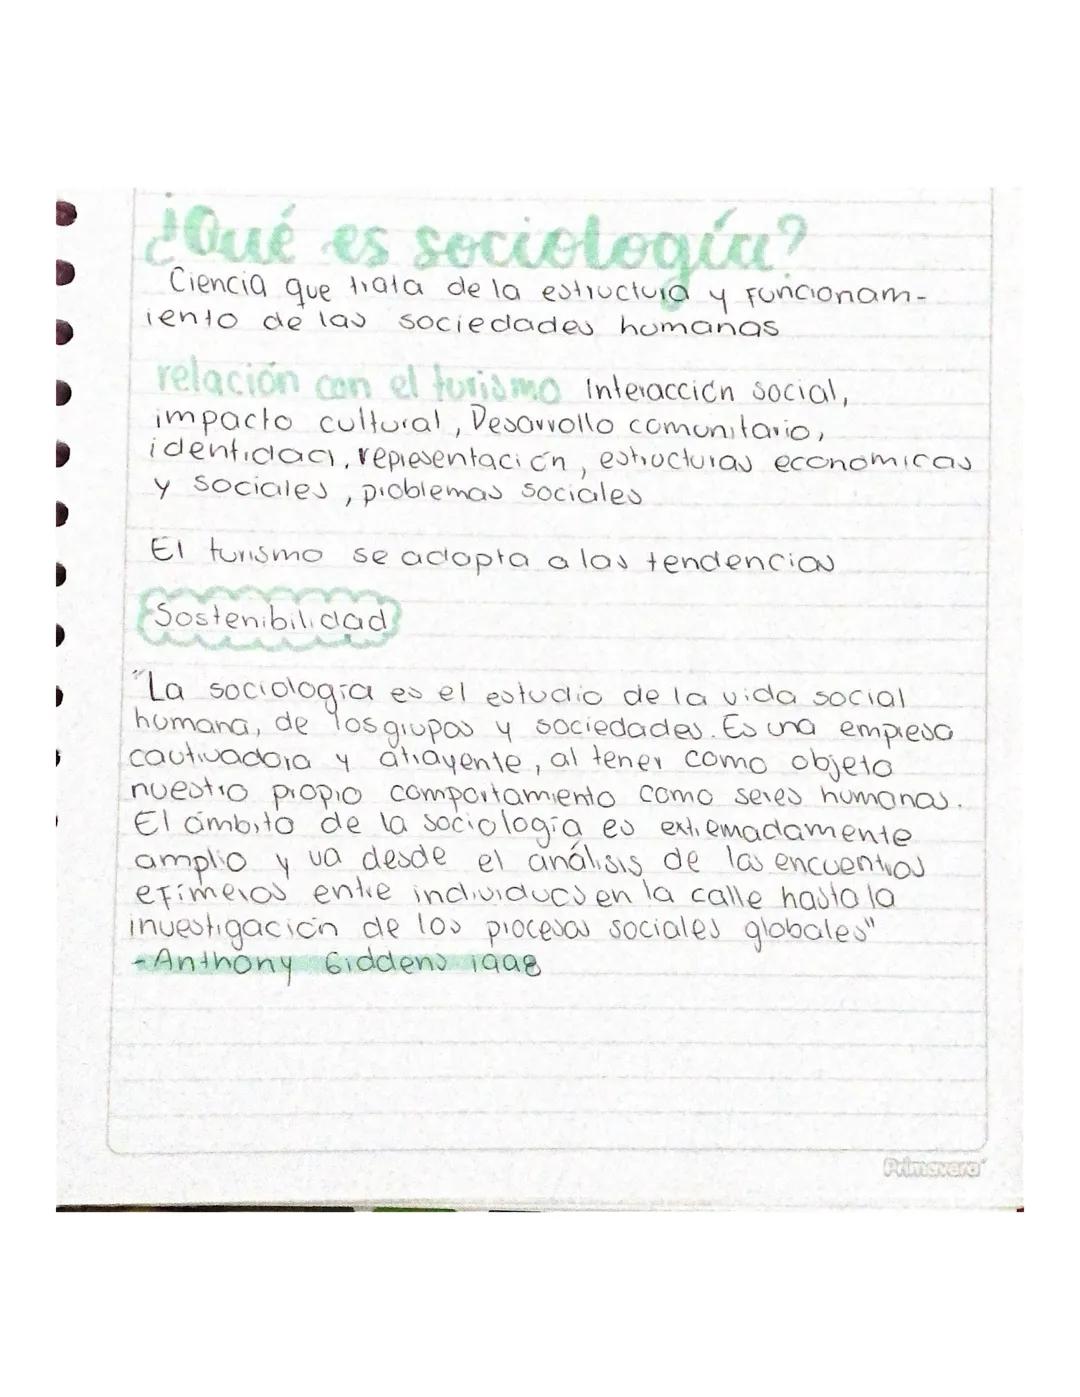 ¿Qué es sociología?
Ciencia que trata de la estructura y Funcionam-
iento de las sociedades humanas
relación con el turismo Interacción social,
impacto cultural, Desarrollo comunitario,
identidad, representación, estructuras economicas
y sociales, problemas sociales
El turismo se adapta a las tendencias
Sostenibilidad
"La sociología es el estudio de la vida social
humana, de los grupos y sociedades. Es una empresa
cautivadora y atrayente, al tener como objeto
nuestro propio comportamiento como seres humanos.
El ámbito de la sociología es extremadamente
amplio y va desde el análisis de los encuentros
efímeros entre individuos en la calle hasta la
investigación de los procesos sociales globales"
- Anthony Giddens 1998
Primavera